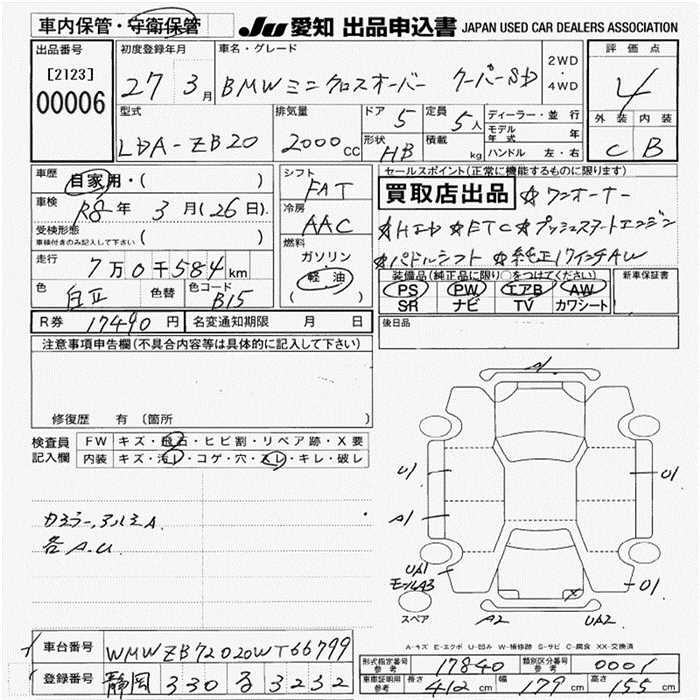 車内保管・守衛保管
JU 愛知 出品申込書 JAPAN USED CAR DEALERS ASSOCIATION
出品番号 初度登録年月 車名・グレード 2WD ・ 4WD 評価点
[2123] 27 3月 BMWミニクロスオーバー クーパーSD 4
00006
型式 排気量 ドア 5 定員 5人 ディーラー・並行 外装 内装
LDA-ZB20 2000cc 形状 HB 積載 kg モデル年式 年 C B
ハンドル 左・右
車歴 自家用・( ) シフト FAT セールスポイント(正常に機能するものに限ります)
車検 R8年 3月(26日) 冷房 AAC 買取店出品 ☆ワンオーナー
受検形態 ( )
車検付きのみ記入して下さい
☆HID ☆ETC ☆プッシュスタートエンジン
走行 7万0千584km 燃料 ガソリン・軽油 ( ) ☆パドルシフト ☆純正17インチAW
色 白 色替 色コード B15 装備品(純正品に限り○をつけてください) 新車保証書
PS PW エアB AW
SR ナビ TV カワシート
R券 17490円 名変通知期限 月 日 後日品
注意事項申告欄(不具合内容等は具体的に記入して下さい)
修復歴 有 〔箇所
検査員記入欄 FW キズ・飛石・ヒビ割・リペア跡・X要
内装 キズ・汚レ・コゲ・穴・スレ・キレ・破レ
U1 U1
A1
カミラー,アルミA
各A.U.
UA1
モールA3
U1
スペア A2 UA2
A-キズ E-エクボ U-凹み W-補修跡 S-サビ C-腐食 XX-交換済
車台番号 WMWZB72020WT66799
登録番号 静岡 330 る 3232
形式指定番号 参考 17840 類別区分番号 参考 0001
車庫証明用 参考 長さ 412cm 幅 179cm 高さ 155cm